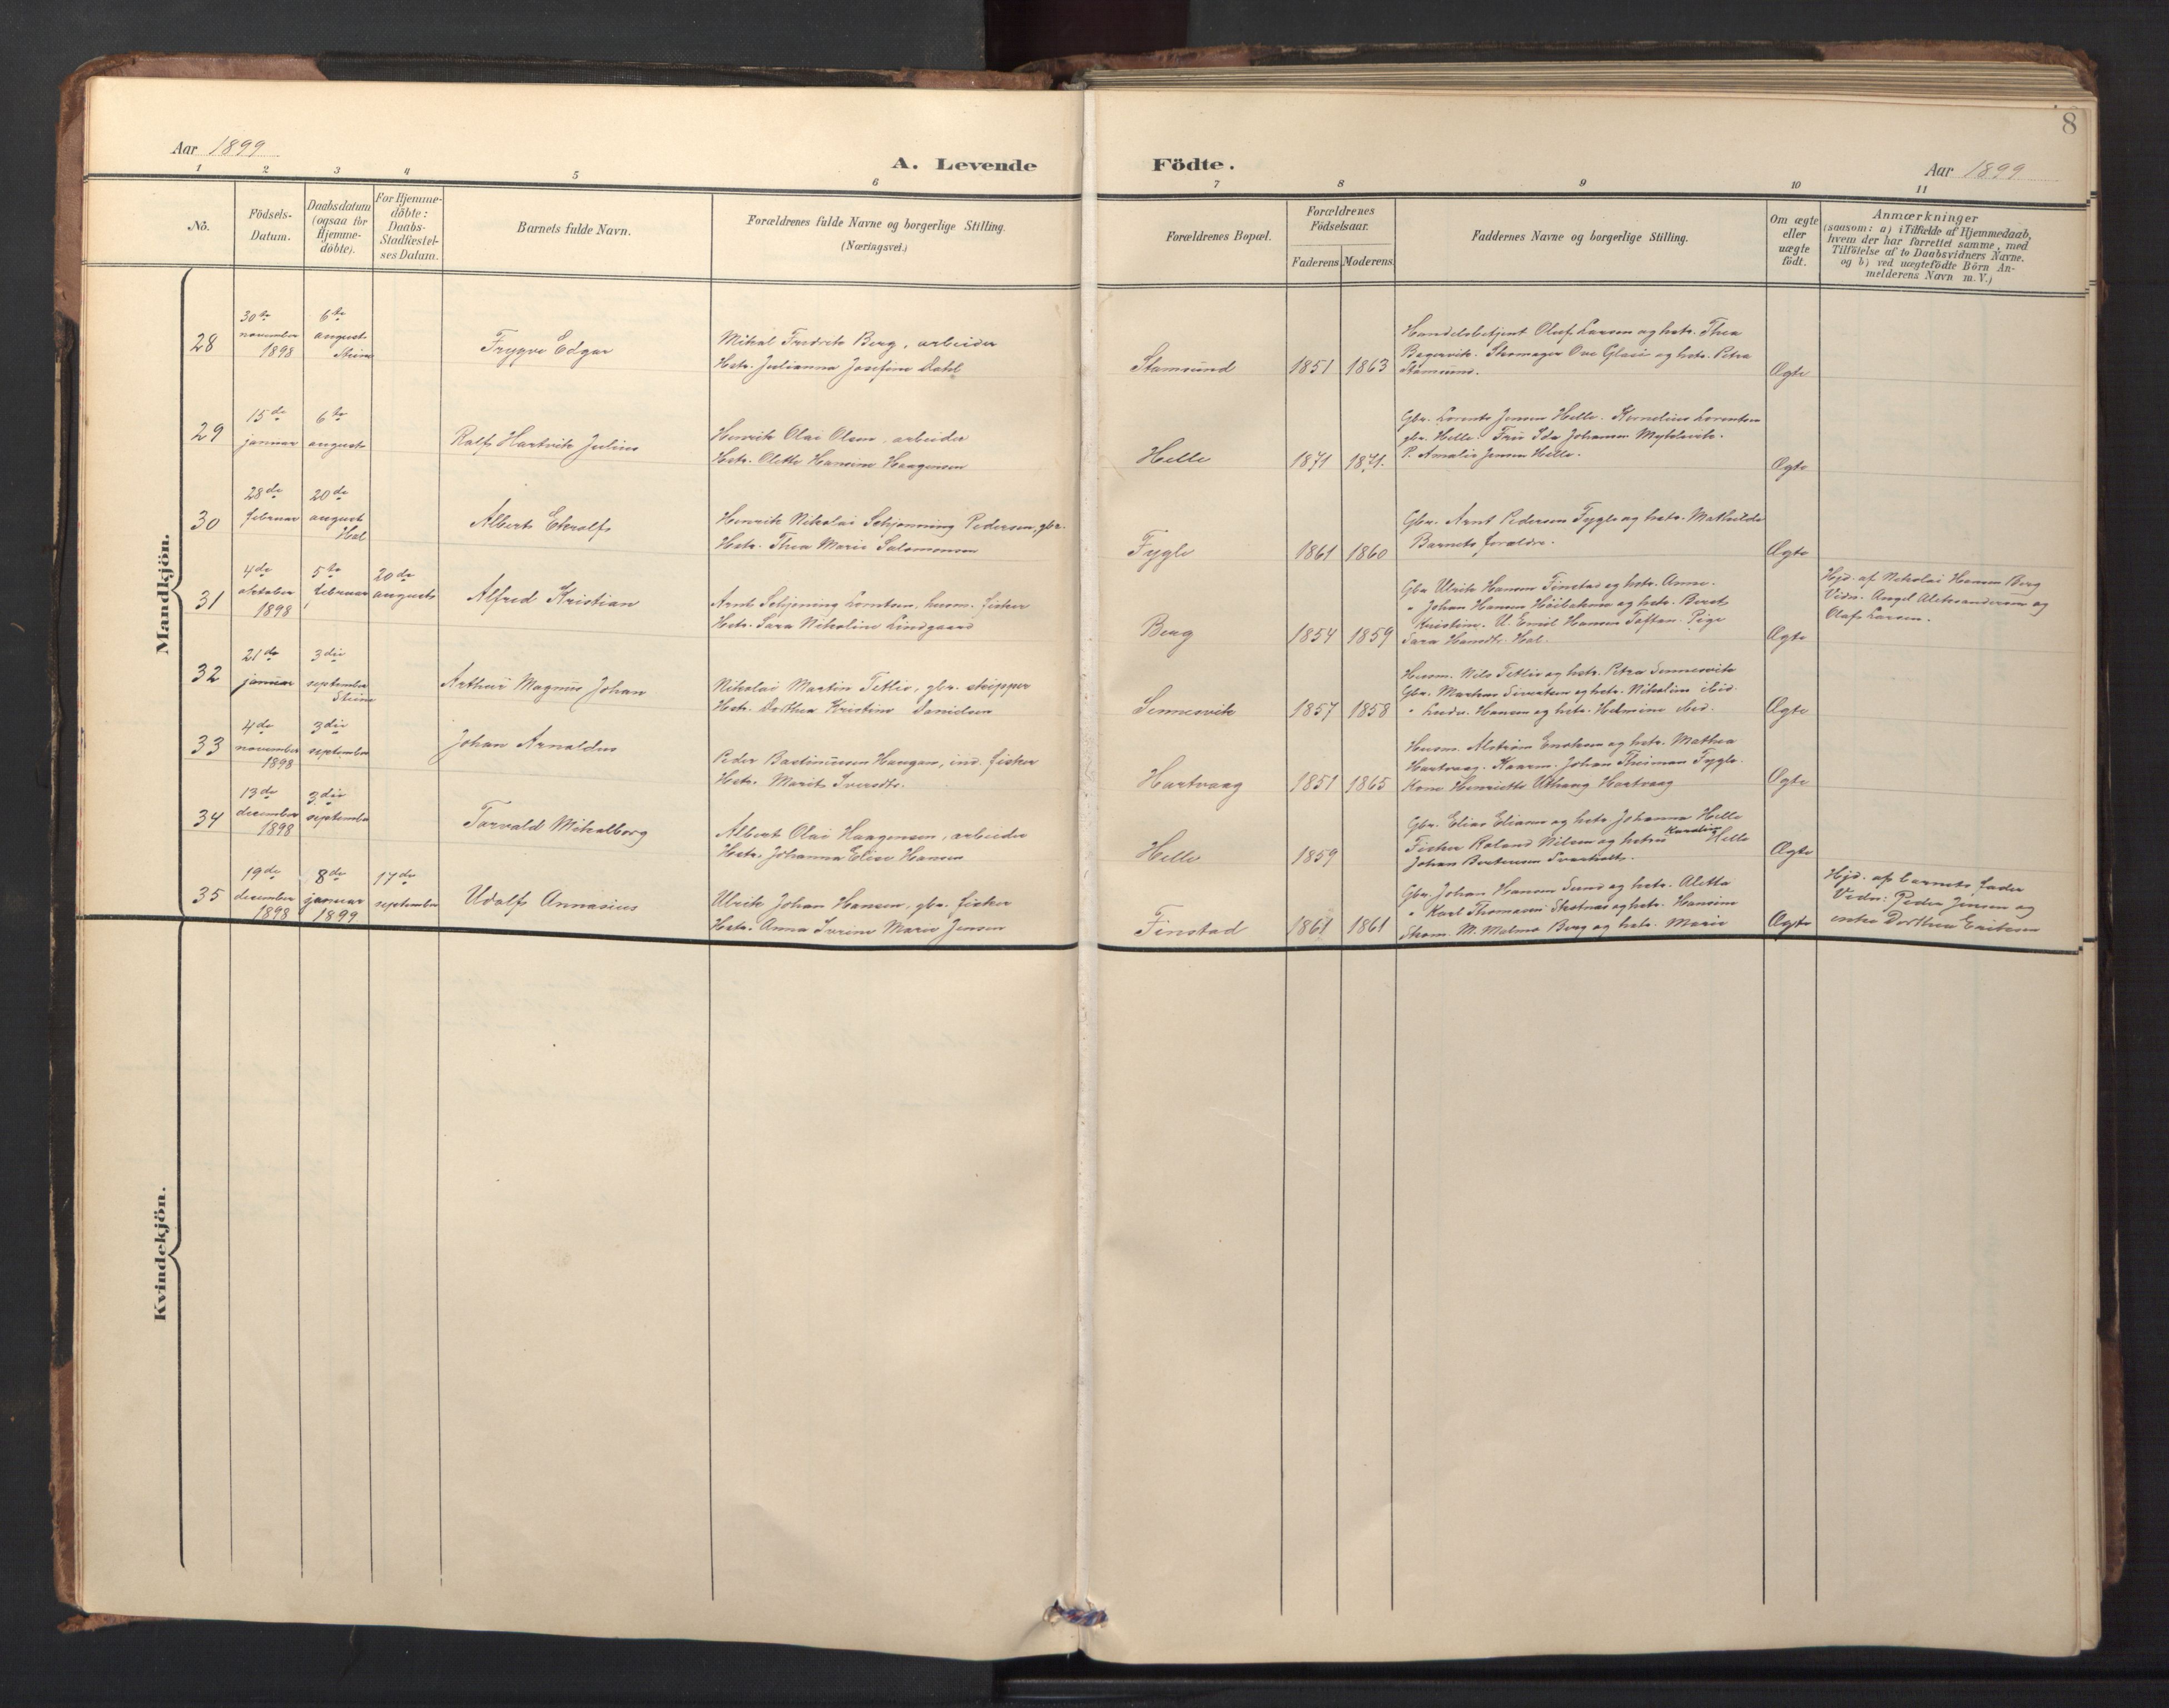 8
Aar 1899
A. Levende Födte.
Aar 1899
1 2 3 4 5 6 7 8 9 10 11
No.
Födsels-Datum.
Daabsdatum (ogsaa for Hjemme-döbte).
For Hjemme-döbte: Daabs-Stadfæstel-ses Datum.
Barnets fulde Navn.
Forældrenes fulde Navne og borgerlige Stilling.
(Næringsvei.)
Forældrenes Bopæl.
Forældrenes Födselsaar.
Faderens Moderens
Faddernes Navne og borgerlige Stilling.
Om ægte eller uægte födt.
Anmærkninger
(saasom: a) i Tilfælde af Hjemmedaab,
hvem der har forrettet samme, med
Tilföielse af to Daabsvidners Navne.
og b) ved uægtefödte Börn An-
melderens Navn m. V.)
Mandkjön.
28
30te november 1898
6te august Steine
Trygve Edgar
Mikal Fredrik Berg, arbeider
Hstr. Julianna Josefine Dahl
Stamsund
1851 1863
Handelsbetjent Oluf Larsen og hstr. Thea
Skomager Ove Glasø og hstr. Petra
Stamsund.
Ægte
29
15de januar
6te august
Ralf Hartvik Julius
Henrik Olai Olsen, arbeider
Hstr. Olette Hansine Haagensen
Helle
1871 1871.
Gbr. Lorents Jensen Helle. Kornelius Lorentsen
gbr. Helle. Frü Ida Johansen
P. Amalie Jensen Helle.
Ægte
30
28de februar
20de august Hol
Albert Ekralf
Henrik Nikolai Schjønning Pedersen, gbr.
Hstr. Thea Marie Salomonsen
Fygle
1861 1860
Gbr. Arnt Pedersen Fygle og hstr. Mathilde
Barnets forældre.
Ægte
31
4de oktober 1898
5te februar
20de august
Alfred Kristian
Arnt Schjøning Lorntsen, husm. fisker
Hstr. Sara Nikoline Lindgaard
Berg
1854 1859
Gbr Ulrik Hansen Finstad og hstr. Anne.
" Johan Hansen og hstr. Beret
Kristine. U. Emil Hansen Toftan. Pige
Sara Hansdtr. Hol.
Ægte
Hjd. af Nikolai Hansen Berg
Vidn. Angel Aleksandersen og
Olaf Larsen.
32
21de januar
3die september Steine
Arthur Magnus Johan
Nikolai Martin Tetlie, gbr. skipper
Hstr. Dorthea Kristine Danielsen
Sennesvik
1857 1858
Husm. Nils Tetlie og hstr. Petra Sennesvik
Gbr. Martens Sivertsen og hstr. Nikoline ibid.
" Ludv. Hansen og hstr. Helmine ibid.
Ægte
33
4de november 1898
3die september
Johan Arnoldus
Peder Bastinusen Haugan, ind. fisker
Hstr. Marit Iversdtr.
Hartvaag
1851 1865
Husm. Alstrøm Enoksen og hstr. Mathea
Hartvaag. Kaarm. Johan Theiman Fygle.
Kone Henriette Uthaug Hartvaag
Ægte
34
13de december 1898
3die september
Torvald Mikalborg
Albert Olai Haagensen, arbeider
Hstr. Johanna Elise Hansen
Helle
1859
Gbr. Elias Eliasen og hstr Johanna Helle
Fisker Roland Nilsen og hstru Karoline Helle
Johan Berteusen Svartholt.
Ægte
35
19de december 1898
8de januar 1899
17de september
Udolf Annasius
Ulrik Johan Hansen, gbr. fisker
Hstr. Anna Ivrine Marie Jensen
Finstad
1861 1861
Gbr. Johan Hansen Sund og hstr. Aletta
" Karl Thomasen og hstr. Hansine
M. Malmo Berg og hstr. Marie
Ægte
Hjd. af barnets fader
Vidn: Peder Jensen og
enke Dorthea Eriksen
Kvindekjön.